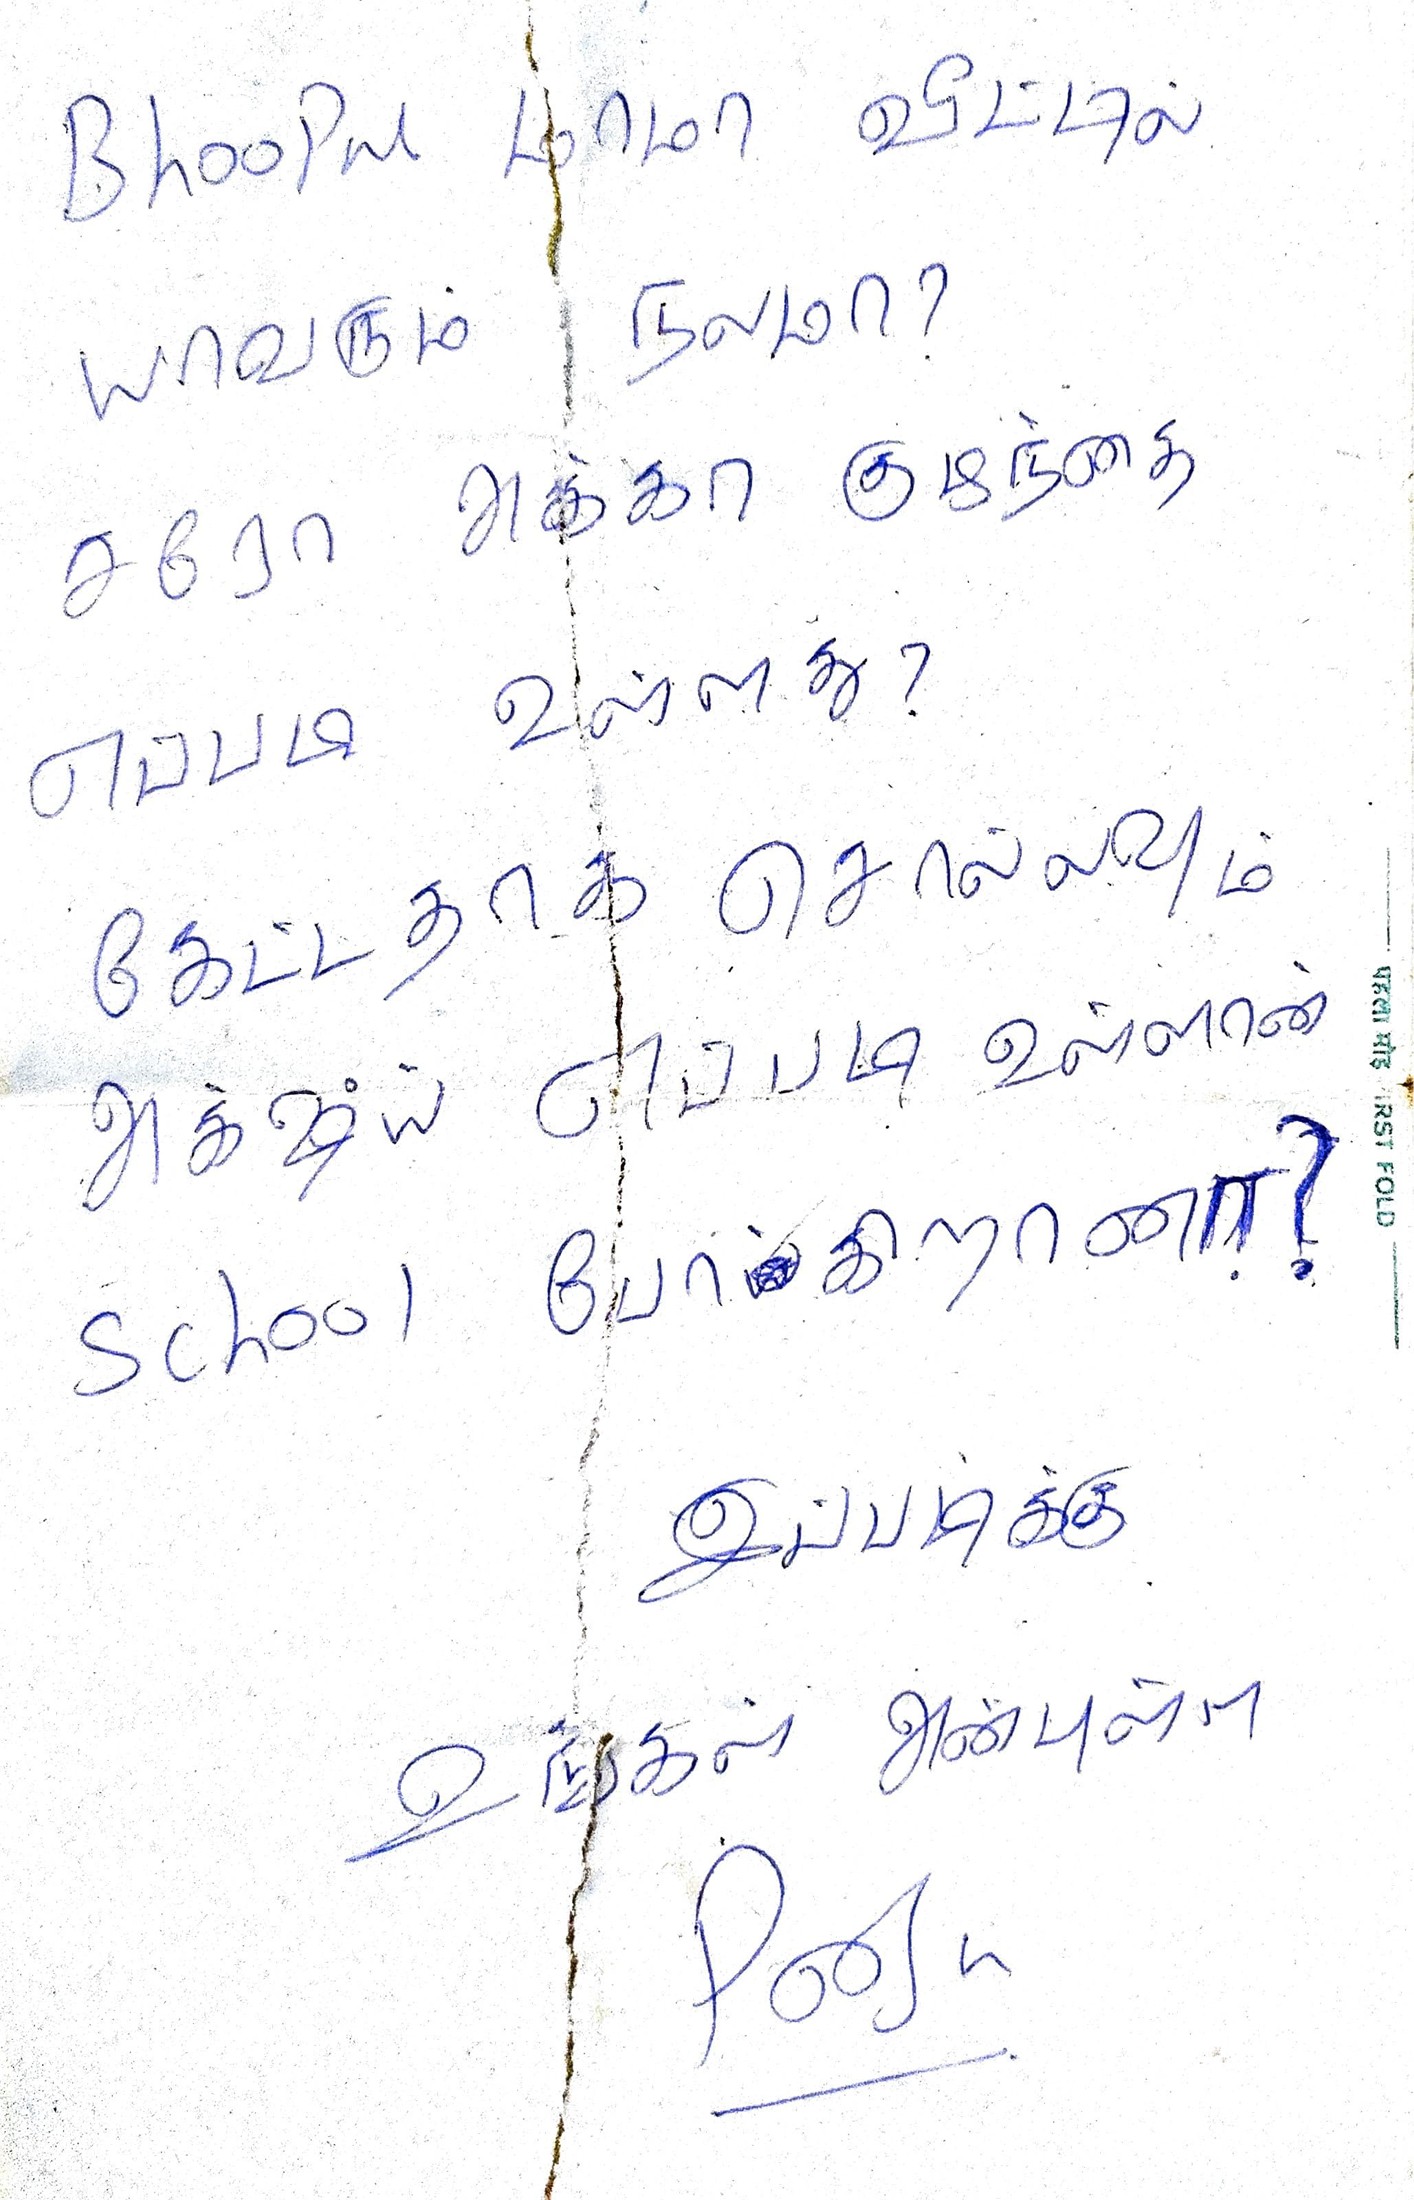 Bhoopal மாமா வீட்டில்
யாவரும் நலமா?
சரோ அக்கா குழந்தை
எப்படி உள்ளது?
கேட்டதாக சொல்லவும்
அக்ஷய் எப்படி உள்ளான்
School போகிறானா?
இப்படிக்கு
உங்கள் அன்புள்ள
पहला मोड़ FIRST FOLD